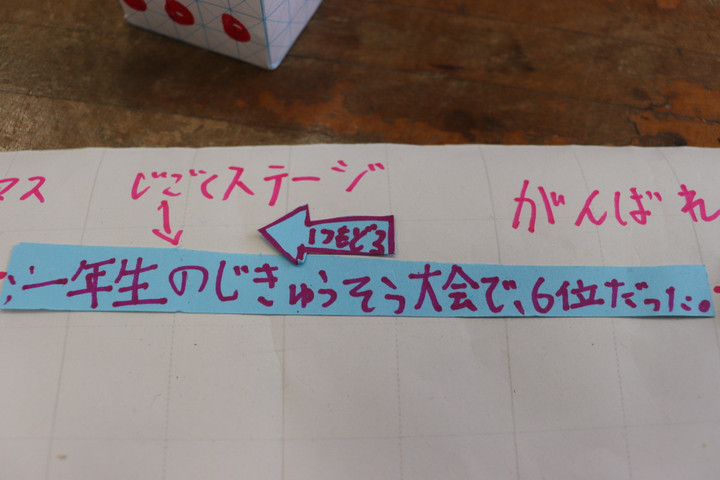 マス
じごくステージ
がんばれ
1つもどる
一年生のじきゅうそう大会で、6位だった。